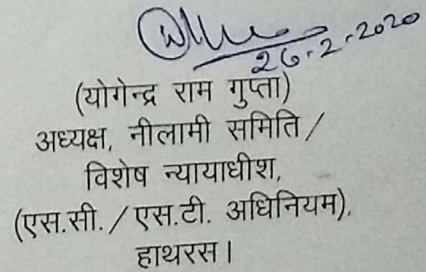 26.2.2020
(योगेन्द्र राम गुप्ता)
अध्यक्ष, नीलामी समिति /
विशेष न्यायाधीश,
(एस.सी. / एस.टी. अधिनियम),
हाथरस।